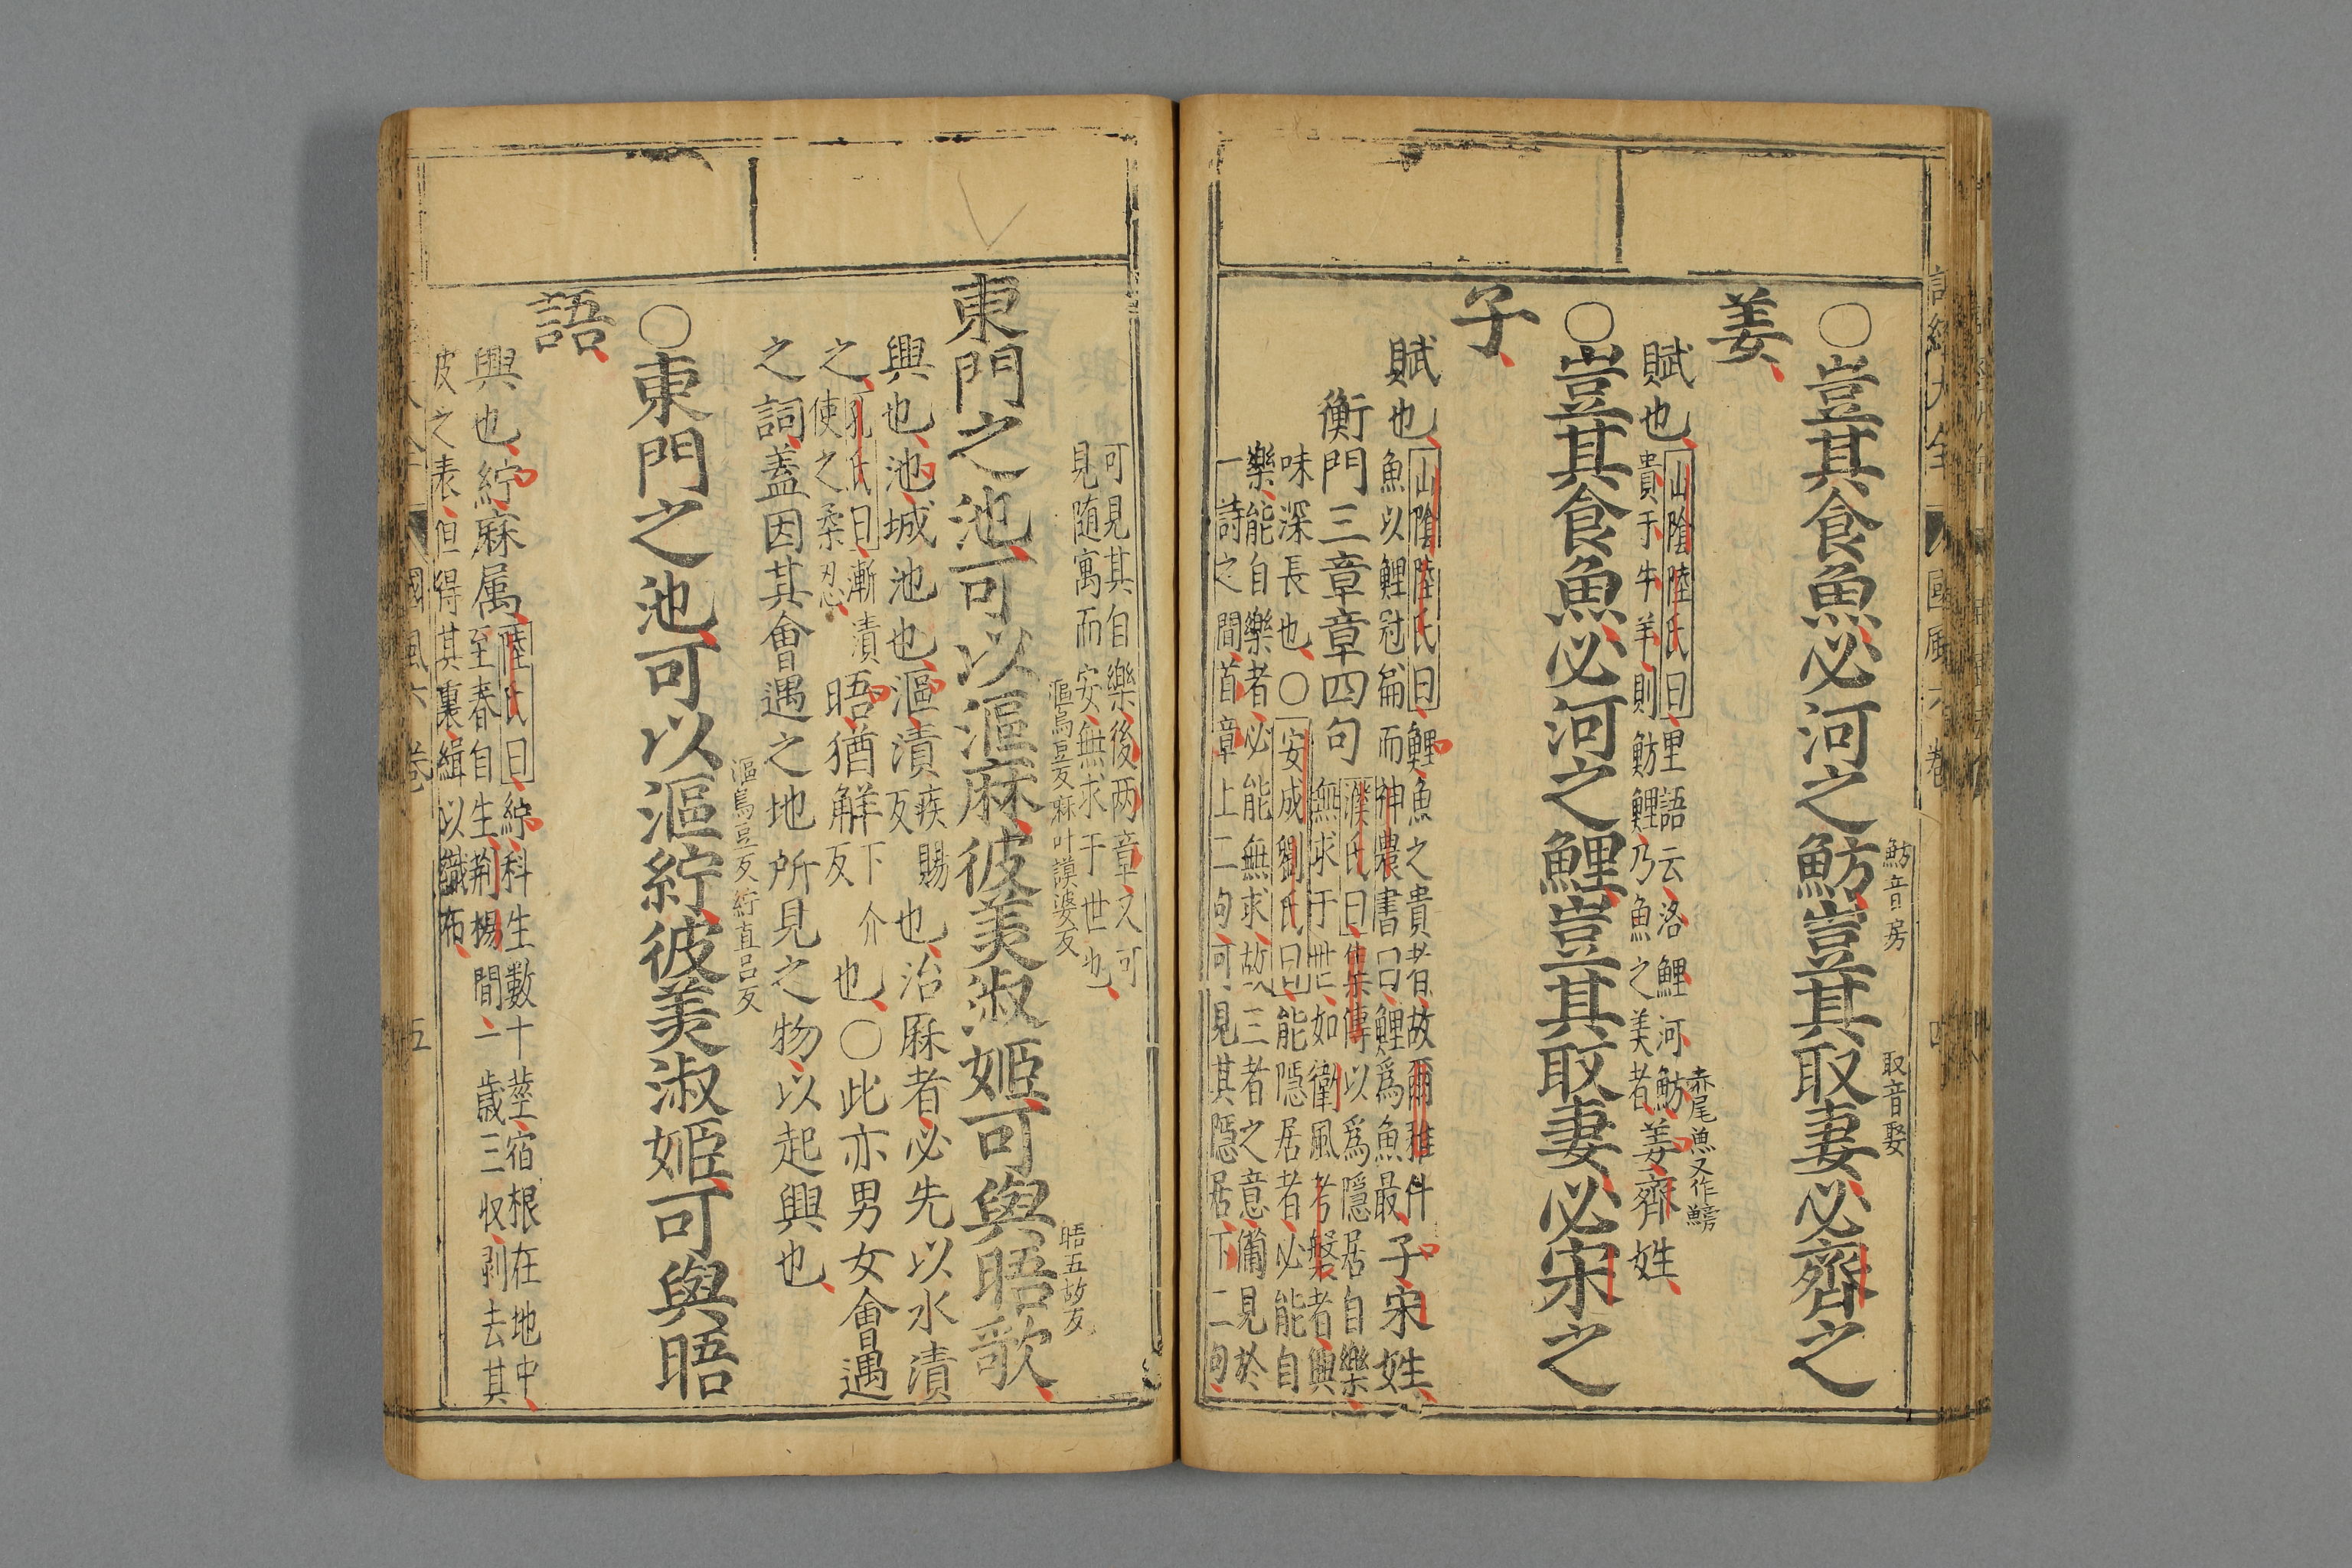 鲂音房
取音娶
○豈其食魚必河之魴豈其取妻必齊之
姜
赤尾魚又作鰟
賦也山陰陸氏曰里語云洛鯉河魴
貴于牛羊則魴鯉乃魚之美者姜齊姓
○豈其食魚必河之鯉豈其取妻必宋之
子
賦也山陰陸氏曰鯉魚之貴者故爾雅
魚以鯉冠篇而神農書曰鯉爲魚最子宋姓
衡門三章章四句濮氏曰集傳以爲隱居自樂
無求于世如衛風考槃者興
味深長也○安成劉氏曰能隱居者必能自
樂能自樂者必能無求故三者之意備見於
一詩之間首章上二句可見其隱居下二句
可見其自樂後两章又可
見随寓而安無求于世也
漚烏豆反麻叶謨婆反
晤五故反
東門之池可以漚麻彼美淑姬可與晤歌
興也池城池也漚漬疾賜反也治麻者必先以水漬
之孔氏曰漸漬
使之柔忍晤猶解下介反也○此亦男女會遇
之詞蓋因其會遇之地所見之物以起興也
漚烏豆反紵直呂反
○東門之池可以漚紵彼美淑姬可與晤
語
興也紵麻属陸氏曰紵科生數十莖宿根在地中
至春自生荆楊間一歲三収剥去其
皮之表但得其裏緝以織布
國風六卷
五